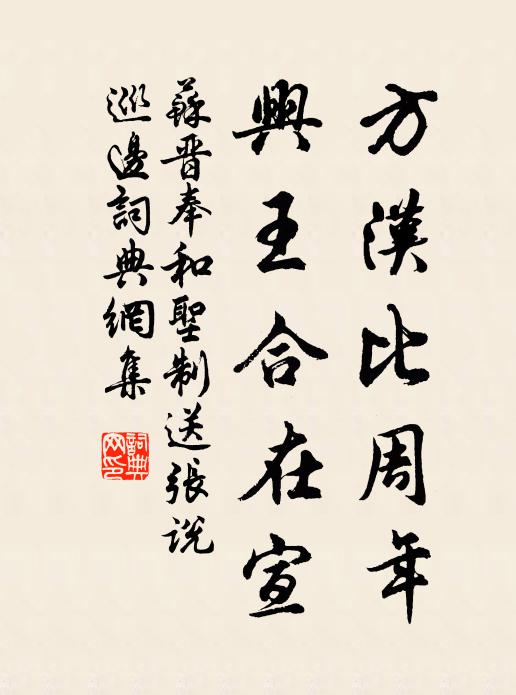 方漢比周年
興王合在宣
蘇晋奉和聖制送張説
巡邊詞典網集
詞典網印